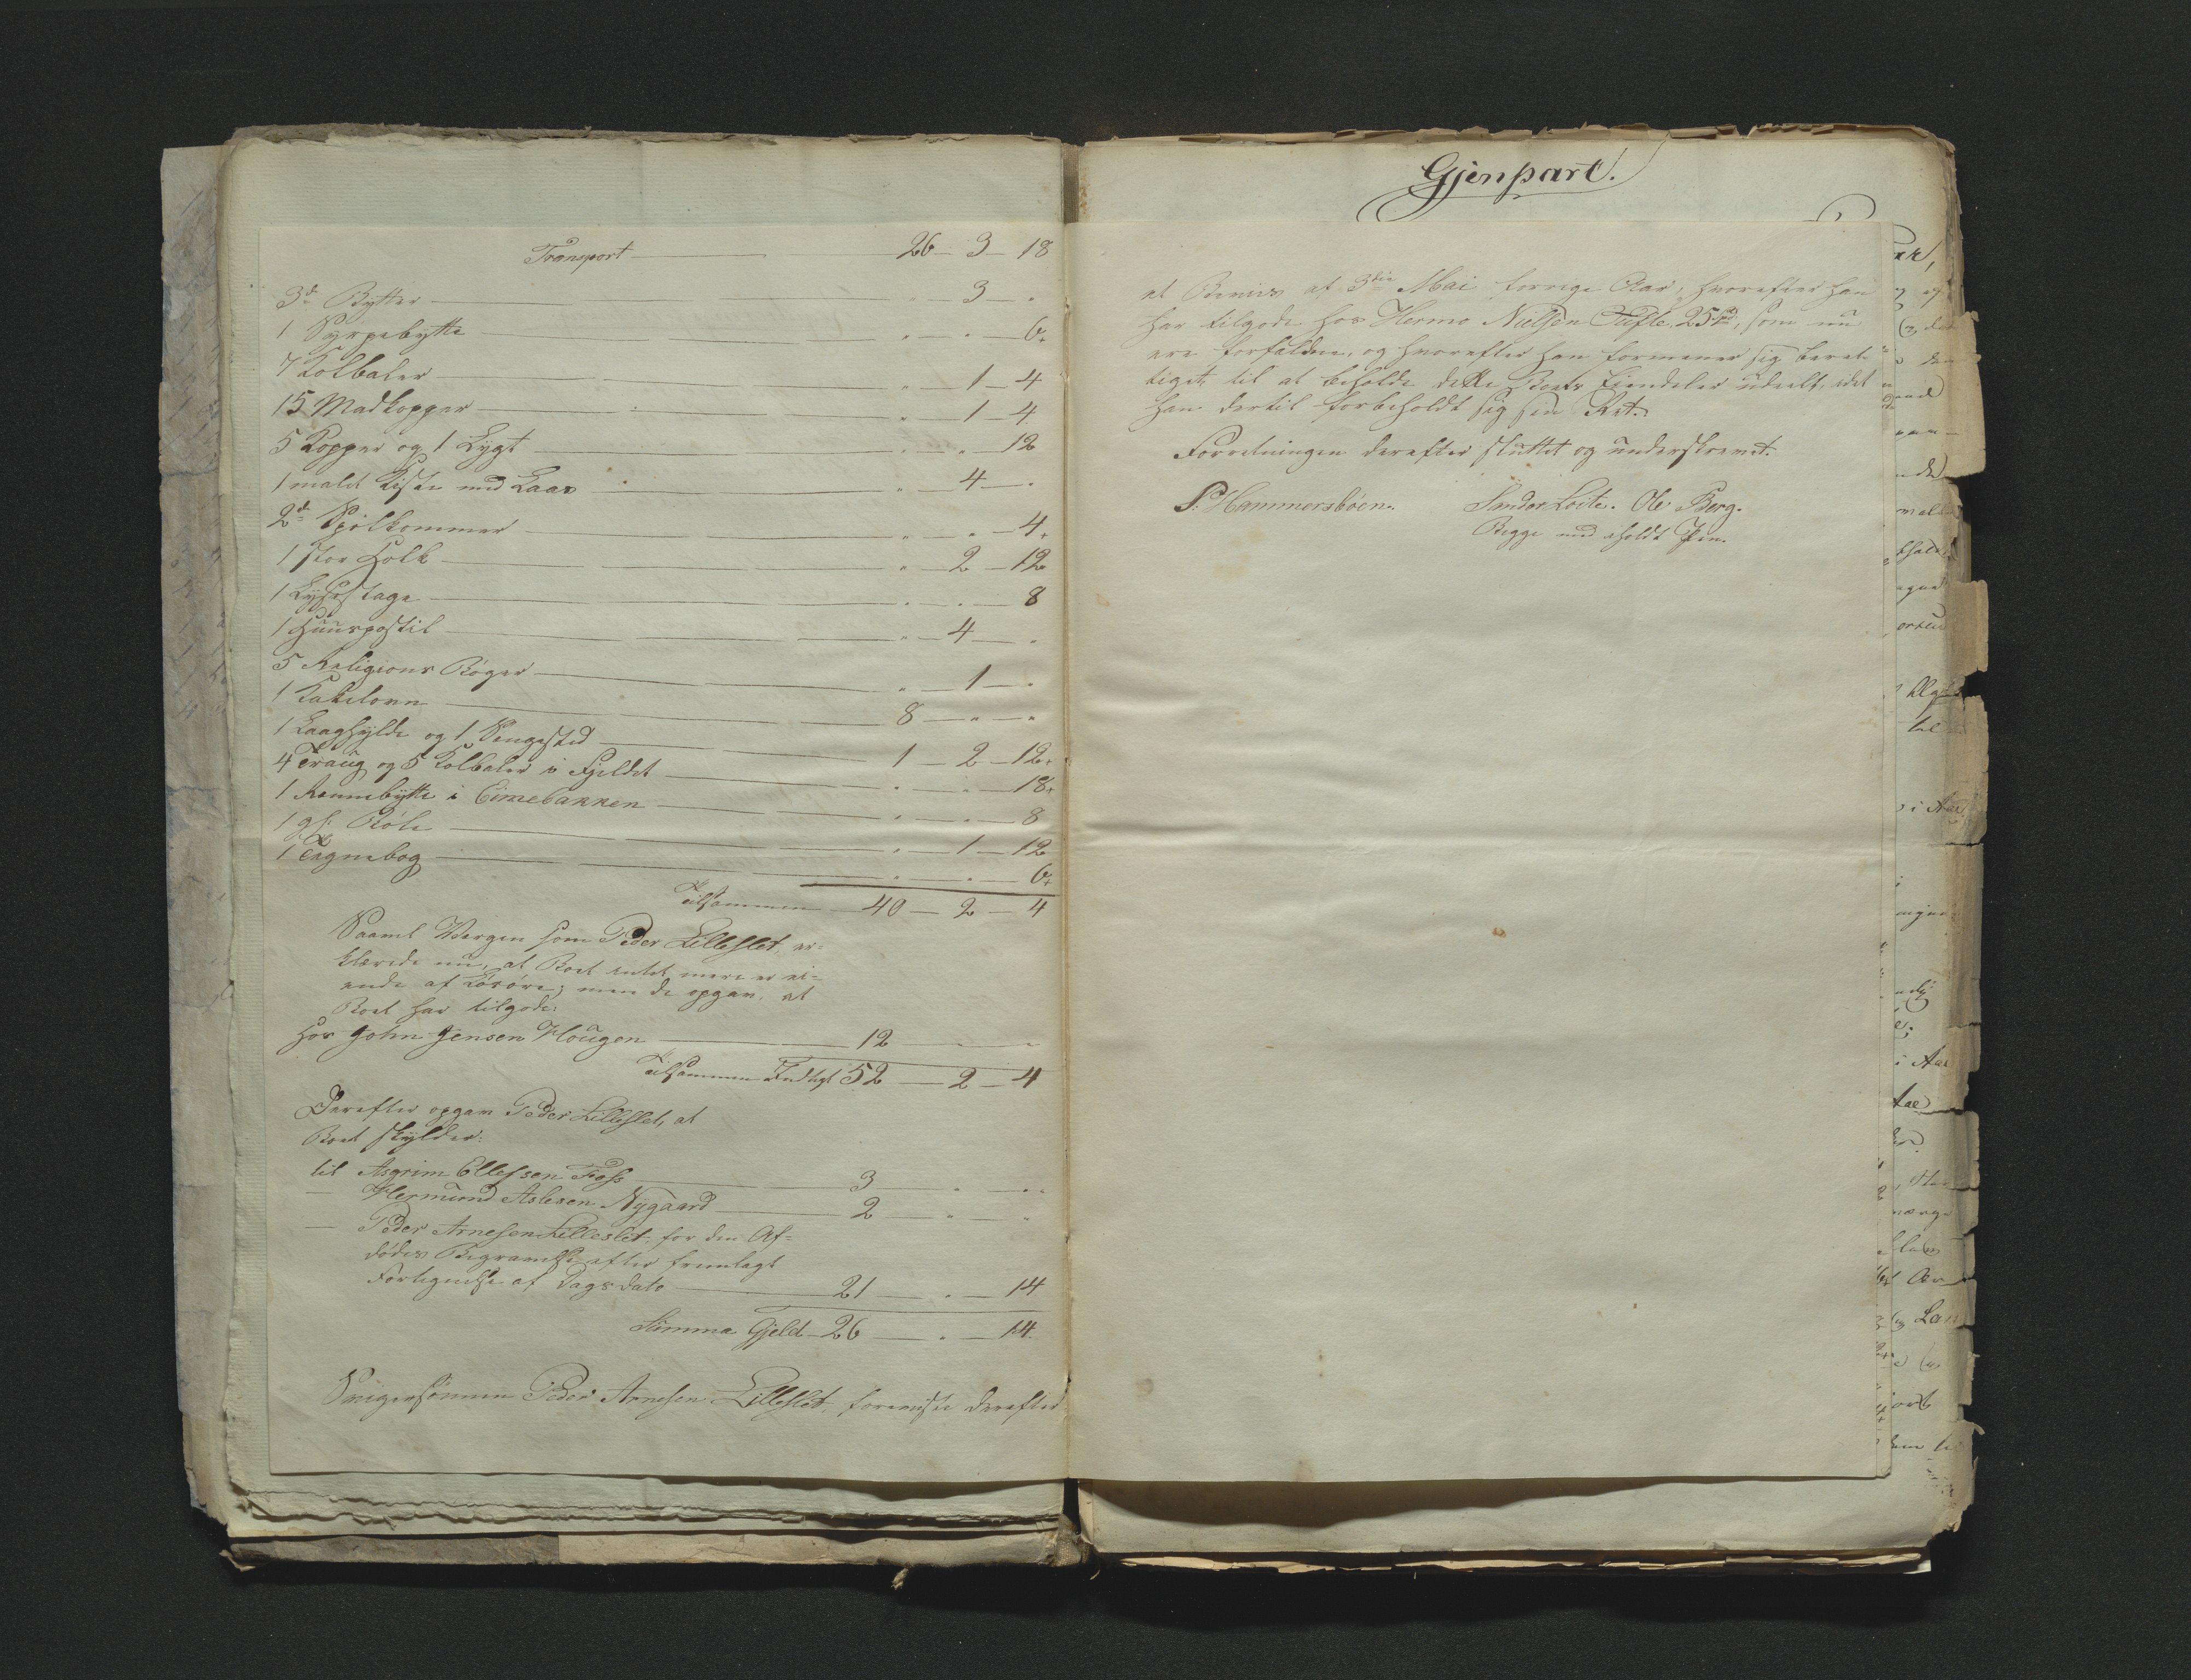 Transport 26 – 3 – 18
3 d: Bytter " 3 – "
1 Syrpebytte " – " – 6.
7 Kolbaler " – 1 – 4
15 Madkopper " – 1 – 4.
5 Kopper og 1 Lygt " – " – 12
1 malet Kiste med Laas " – 4 – "
2 d: Spölkommer " – " – 4.
1 stor Holk " – 2 – 12
1 Lysestage " – " – 8
1 Huuspostil " – 4 – "
5 Religions Bøger " – 1 – "
1 Kakelovn 8 – " – "
1 Laaghylde og 1 Sengested 1 – 2 – 12.
4 Traug og 5 Kolbaler i Fjeldet " – " – 18.
1 Rømmebytte i Eimebakken " – " – 8
1 gl: Bøle " – 1 – 12
1 Tegnebog " – " – 6.
Tilsammen 40 – 2 – 4
Saavel Vergen som Peder Lilleslet er-
klærede nu, at Boet intet mere er ei-
ende af Løsøre; men de opgav, at
Boet har tilgode
hos John Jensen Hougen 12 – "
Tilsammen Indtægt 52 – 2 – 4
Derefter opgav Peder Lilleslet, at
Boet skylder:
til Asgrim Ellefsen Foss 3 – " – "
— Hermund Aslesen Nygaard 2 – " – "
— Peder Arnesen Lilleslet for den Af-
dødes Begravelse efter fremlagt
Fortegnelse af Dags dato 21 – " – 14
Summa Gjeld 26 – " – 14.
Svigersønnen Peder Arnesen Lilleslet, foreviste derefter
Gjenpart.
et Beviis af 3die Mai forrige Aar, hvorefter han
har tilgode hos Hermo Nielsen Tufte 25 Spd, som nu
ere forfaldne, og hvorefter han formener sig beret-
tiget til at beholde dette Boets Eiendeler udeelt, idet
han dertil forbeholdt sig sin Ret.
Forretningen derefter sluttet og underskrevet.
S. Hammersbøen. Sander Loite. Ole Berg.
Begge med iholdt Pen.